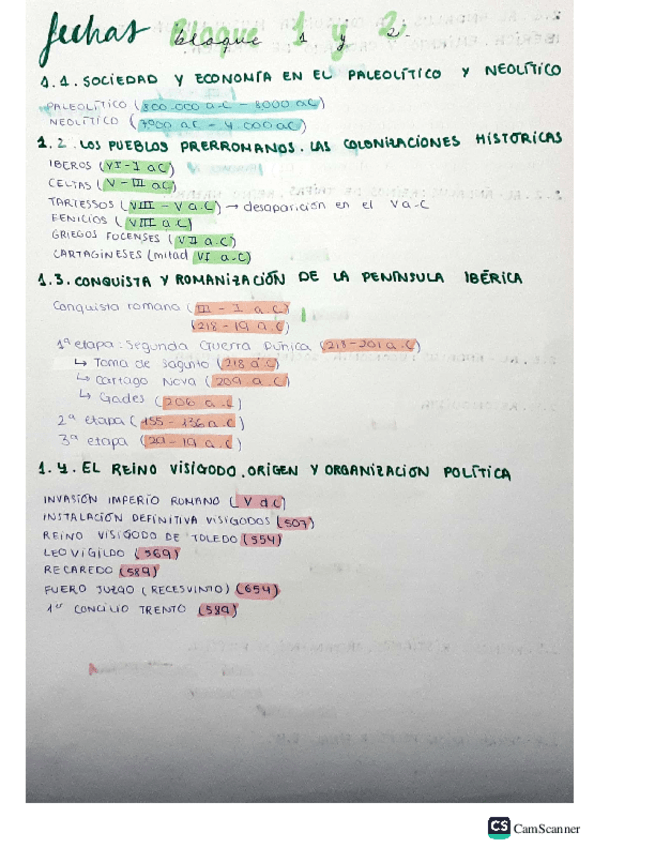 fechas bloque 1 y 2.
1.1. SOCIEDAD Y ECONOMÍA EN EL PALEOLÍTICO Y NEOLÍTICO
PALEOLÍTICO (800.000 a.C - 8000 aC)
NEOLÍTICO (7000 aC - 4.000 aC)
1.2. LOS PUEBLOS PRERROMANOS. LAS COLONIZACIONES HISTÓRICAS
IBEROS (VI - I aC)
CELTAS (V - III aC)
TARTESSOS (VIII - V a.C) → desaparición en el V a-C
FENICIOS (VIII a.C)
GRIEGOS FOCENSES (VII a.C)
CARTAGINESES (mitad VI a-C)
1.3. CONQUISTA Y ROMANIZACIÓN DE LA PENÍNSULA IBÉRICA
Conquista romana (III - I a.C)
(218 - 19 a.C)
1ª etapa: Segunda Guerra Púnica (218 - 201 a.C)
↳ Toma de Sagunto (218 a.C)
↳ Cartago Nova (209 a.C)
↳ Gades (206 a.C)
2ª etapa (155 - 136 a.C)
3ª etapa (29 - 19 a.C)
1.4. EL REINO VISIGODO. ORIGEN Y ORGANIZACIÓN POLÍTICA
INVASIÓN IMPERIO ROMANO (V dC)
INSTALACIÓN DEFINITIVA VISIGODOS (507)
REINO VISIGODO DE TOLEDO (554)
LEOVIGILDO (569)
RECAREDO (589)
FUERO JUZGO (RECESVINTO) (654)
1er CONCILIO TRENTO (589)
CS CamScanner